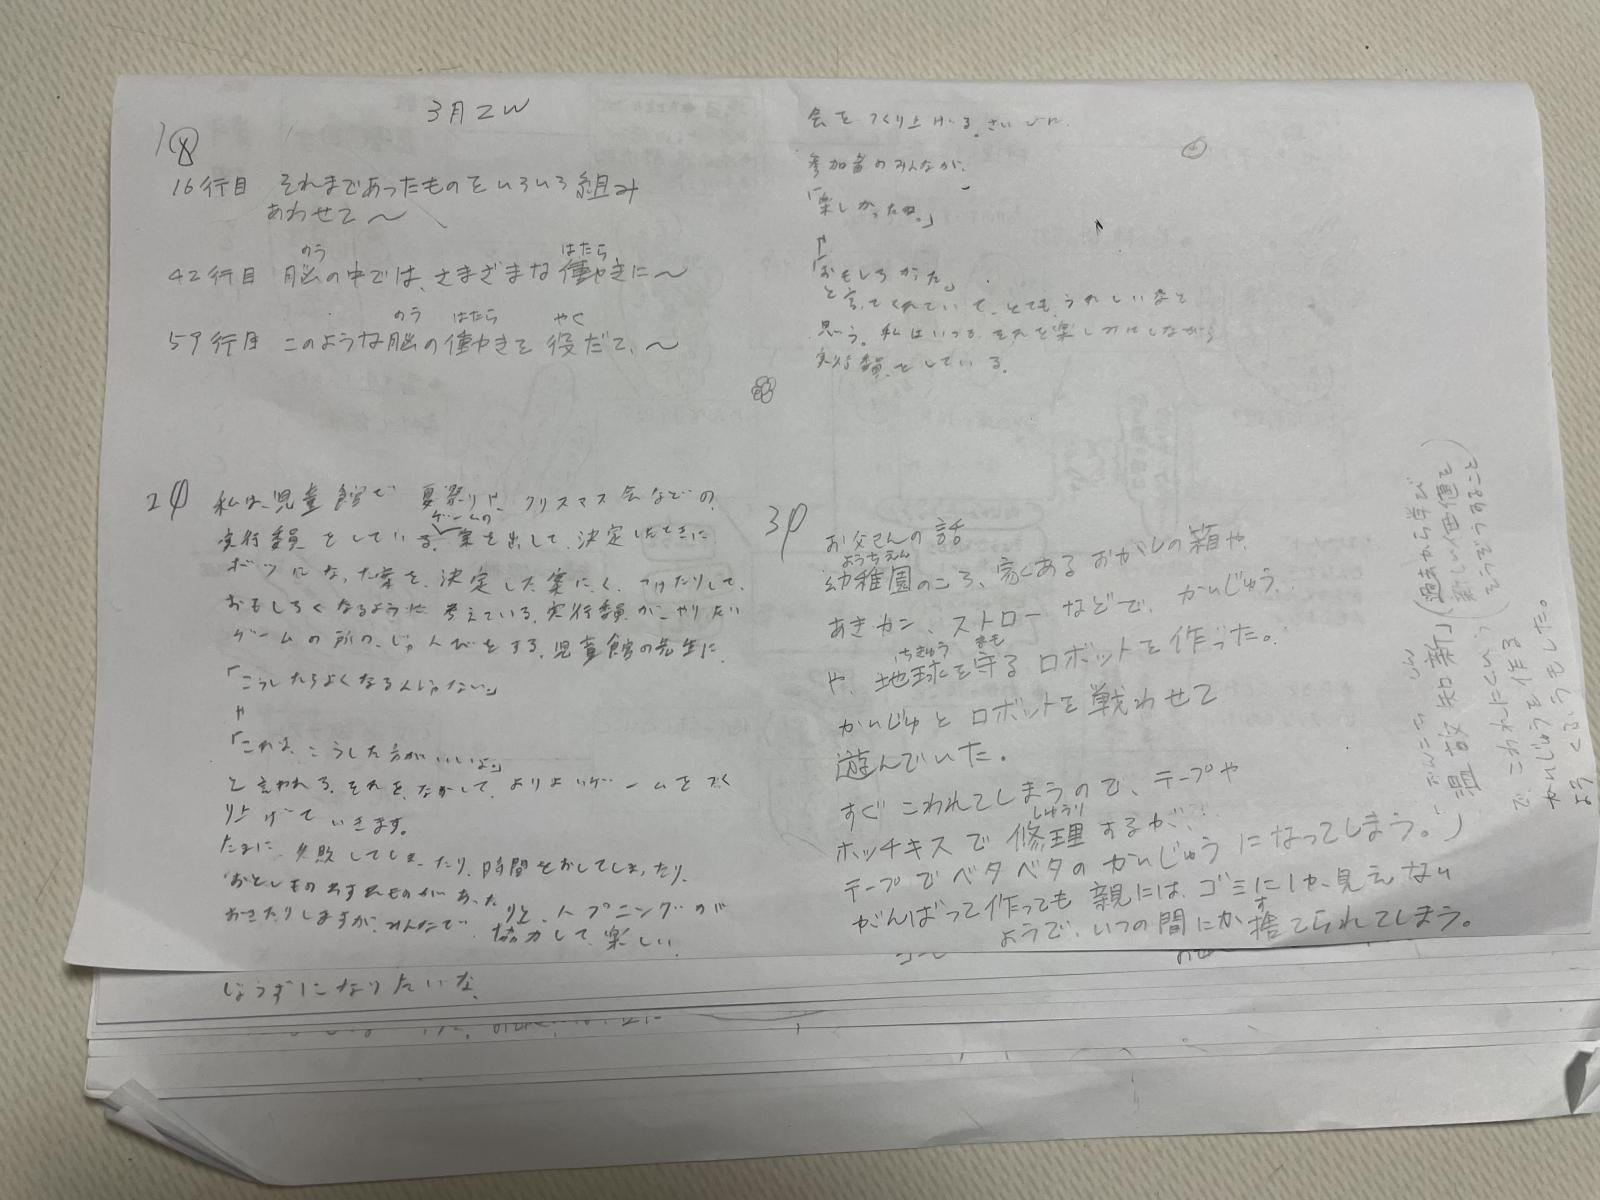 3月2W
16行目 それまであったものをいろいろ組み
あわせて〜
のう はたら
42行目 脳の中では、さまざまな働きに〜
のう はたら やく
59行目 このような脳の働きを役だて、〜
2
私は、児童館で夏祭りや、クリスマス会などの、
ゲームの
実行委員をしている。案を出して、決定したときに
ボツになった案を、決定した案にくっつけたりして、
おもしろくなるように考えている。実行委員がやりたい
ゲームの所の、じゅんびをする。児童館の先生に、
「こうしたらよくなるんじゃない。」
や
「これは、こうした方がいいよ。」
と言われる。それを、なかして、よりよいゲームをつく
り上げていきます。
たまに、失敗してしまったり、時間をおしてしまったり、
おとしものわすれものがあったりと、ハプニングが
おきたりしますが、みんなで、協力して、楽しい
会をつくり上げる。さいごに、
参加者のみんなが、
「楽しかったね。」
や
「おもしろかった。」
と言ってくれていて、とても、うれしいなと
思う。私はいつも、それを楽しみにしながら
実行委員をしている。
3
お父さんの話
ようちえん
幼稚園のころ、家にあるおかしの箱や、
あきカン、ストローなどで、かいじゅう、
ちきゅう まも
や、地球を守るロボットを作った。
かいじゅとロボットを戦わせて
遊んでいた。
すぐこわれてしまうので、テープや
しゅうり
ホッチキスで修理するが、
テープでベタベタのかいじゅうになってしまう。
がんばって作っても親には、ゴミにしか見えない
す
ようで、いつの間にか捨てられてしまう。
「温故知新」(過去から学び
新しい価値を
で、こわれにくい
かいじゅうを作る
よう くふうもした。
じょうずになりたいな、